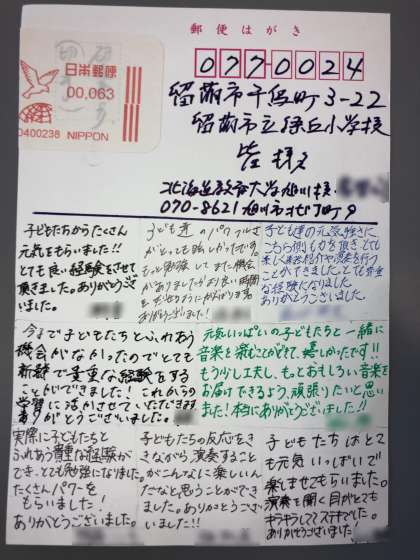 郵便はがき
日本郵便
00,063
0400238 NIPPON
077 0024
留萌市千鳥町3-22
留萌市立緑丘小学校
皆様
北海道教育大学旭川校
070-8621 旭川市北門町9
子どもたちからたくさん
元気をもらいました!!
とても良い経験をさせて
頂きました。ありがとうござ
いました。
子ども達のパワフルさ
がとっても
もっと勉強してまた機会
がありましたがより良い時間
ありがとうございました!
子ども達の元気
こちら側も を頂き とても
楽しく楽器紹介や演奏を行う
ことができました。とても貴重
な経験になりました
ありがとうございました。
今まで子どもたちとふれあう
機会がなかったのでとても
新鮮で貴重な経験をする
ことができました! これからの
学習に活かさせていただきます
ありがとうございました。
元気いっぱいの子どもたちと一緒に
音楽を楽しむことができて、嬉しかったです!!
もう少し工夫し、もっとおもしろい音楽を
お届けできるよう、頑張りたいと思い
ました!本当にありがとうございました!!
実際に子どもたちと
ふれあう貴重な経験が
でき、とても勉強になりました。
たくさんパワーを
もらいました!
ありがとうございました。
子どもたちの反応をき
きながら演奏すること
がこんなに楽しいん
だなと思うことができ
ました。ありがとうござい
ました!!
子どもたちはとて
も元気いっぱいで
楽しませてもらいました。
演奏を聞く目がとても
キラキラしてステキでした。
ありがとうございました